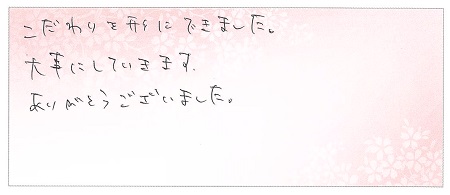 こだわりを形にできました。
大事にしていきます.
ありがとうございました。